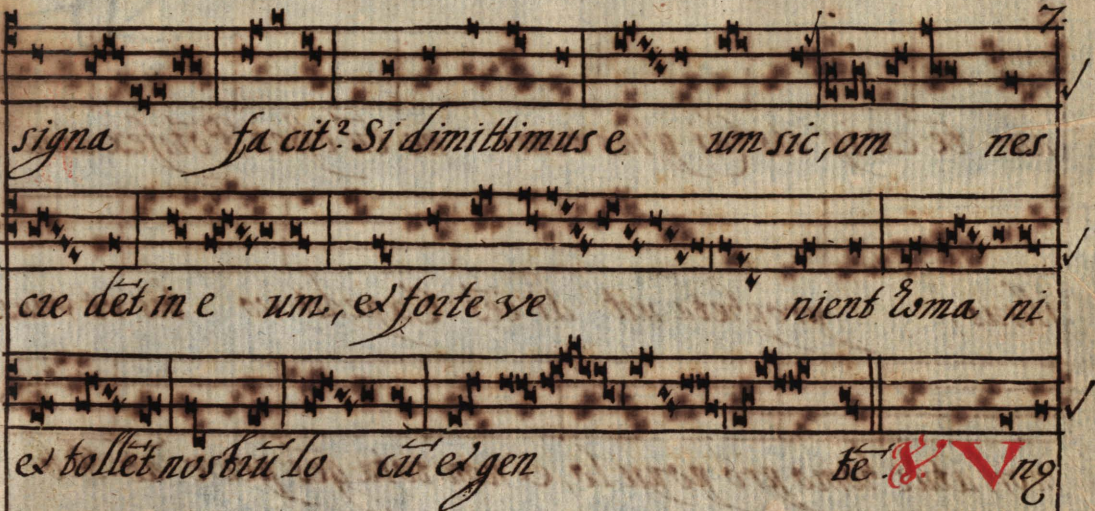 7.
signa fa cit? Si dimittimus e um sic, om nes
cre dēt in e um, et forte ve nient Roma ni
et tollēt nostrū lo cū et gen tē. ℣ Vnꝯ